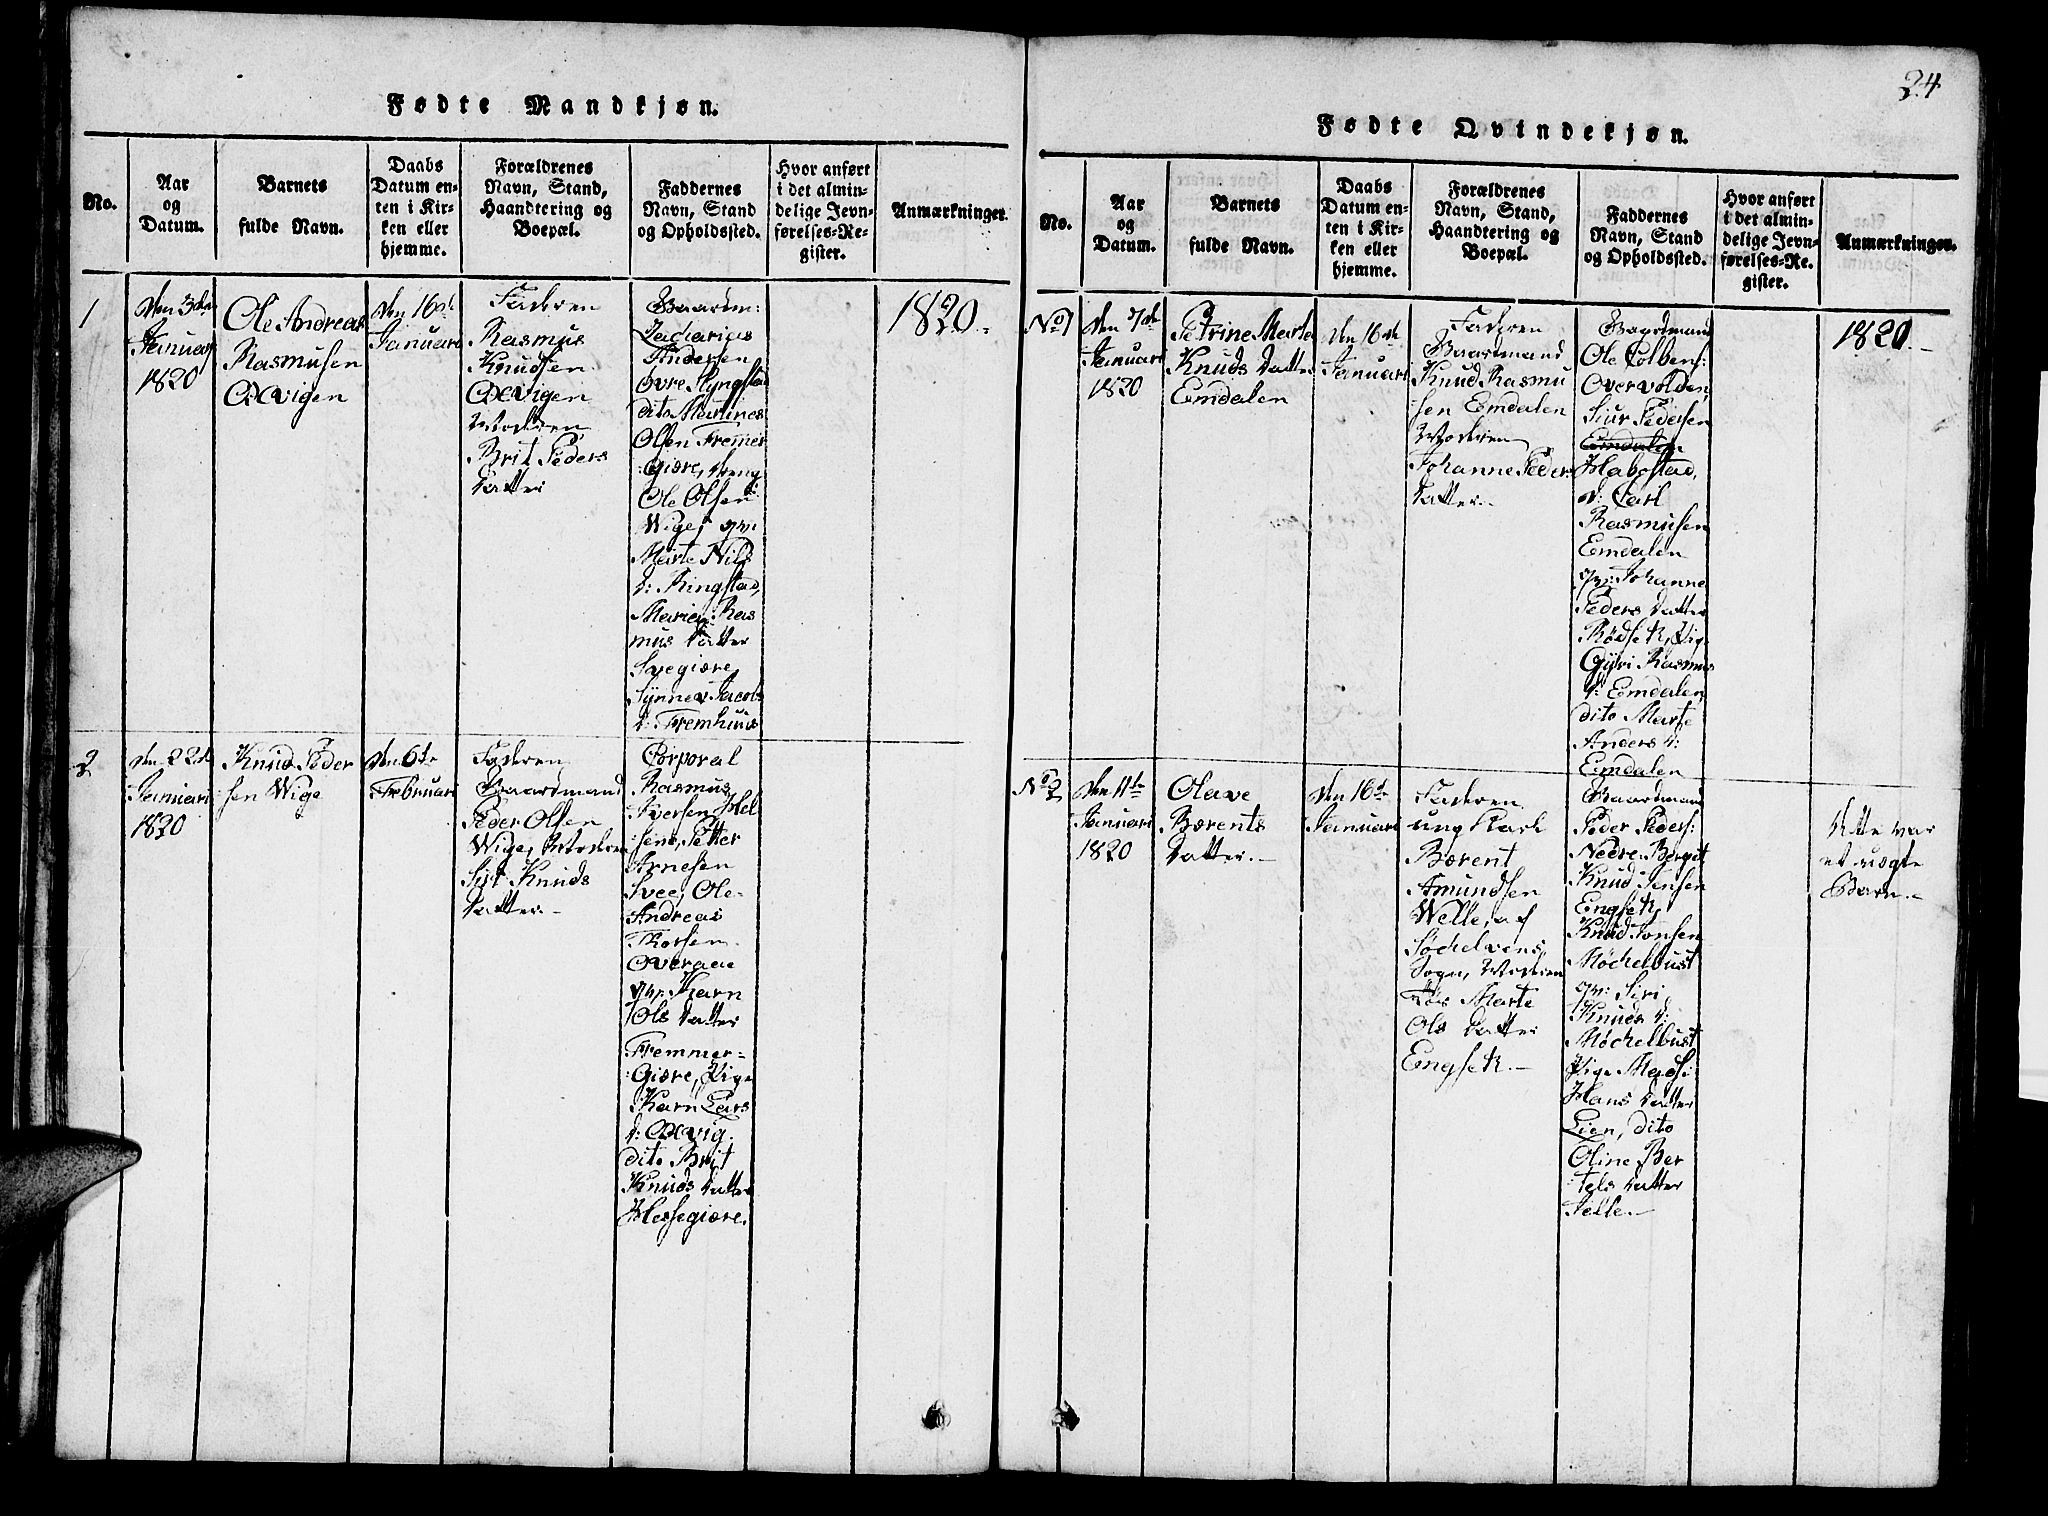 Fødte Mandkjøn.
No.
Aar
og
Datum.
Barnets
fulde Navn.
Daabs
Datum en-
ten i Kir-
ken eller
hjemme.
Forældrenes
Navn, Stand,
Haandtering og
Boepæl.
Faddernes
Navn, Stand
og Opholdssted.
Hvor anført
i det almin-
delige Jevn-
førelses-Re-
gister.
Anmærkninger.
1
den 3die
Januar
1820
Ole Andreas
Rasmusen
Oxvigen
den 16de
Januari
Faderen
Rasmus
Knudsen
Oxvigen
Moderen
Brit Peders
datter
Gaardm:
Zacharias
Andersen
Øvre Ryngstad
dito Martines
Olsen Fremer
:giære, dreng
Ole Olsen
Wige, qv:
Marte Nils
d: Ringstad,
Marien Ras
mus datter
Svegiære,
Synnev Jacobs
d: Fremhuus
1820.
2
den 22de
Januari
1820
Knud Peder
sen Wige
den 6te
Februari
Faderen
Gaardmand
Peder Olsen
Wige, Moderen
Siri Knuds
datter.
Corporal
Rasmus
Iversen Hel
sem, Petter
Arnesen
Svee, Ole
Andreas
Thorsen
Overaae
qv. Karn
Ols datter
Fremmer=
:Giære, Pige
Karn Lars
d: Oxvig.
dito Brit
Knuds datter
Hessegiære.
24
Fødte Qvindekjøn.
No.
Aar
og
Datum.
Barnets
fulde Navn.
Daabs
Datum en-
ten i Kir-
ken eller
hjemme.
Forældrenes
Navn, Stand,
Haandtering og
Boepæl.
Faddernes
Navn, Stand
og Opholdssted.
Hvor anført
i det almin-
delige Jevn-
førelses-Re-
gister.
Anmærkninger.
No 1
den 7de
Januari
1820
Petrine Marta
Knuds datter
Emdalen
den 16de
Januari
Faderen
Gaardmand
Knud Rasmu
sen Emdalen
Moderen
Johanne Peders
datter.
Gaardmand
Ole Colbens:
Overvolden,
Siur Pedersen
Emdalen
Habostad,
d: Carl
Rasmusen
Emdalen
qv: Johanne
Peders datter
Rødsetk, Pig
Gÿri Rasmus
d: Emdalen,
dito Marte
Anders d:
Emdalen
1820.
No 2
den 11te
Januari
1820
Olave
Bærents
datter.
den 16de
Januari
Faderen
ung Karl
Bærent
Amundsen
Welle, af
Søchelvens
Sogn, Moderen
Marte
Ols datter
Engsetk.
Gaardmand
Peder Peders:
Nedre Bergit
Knud Jensen
Engsetk,
Knud Jonsen
Møchelbust
qv: Siri
Knuds d:
Møchelbust
Pige Madsi
Hans datter
Lien, dito
Oline Ber
:tels datter
Velle.
dette var
et uægte
Barn.